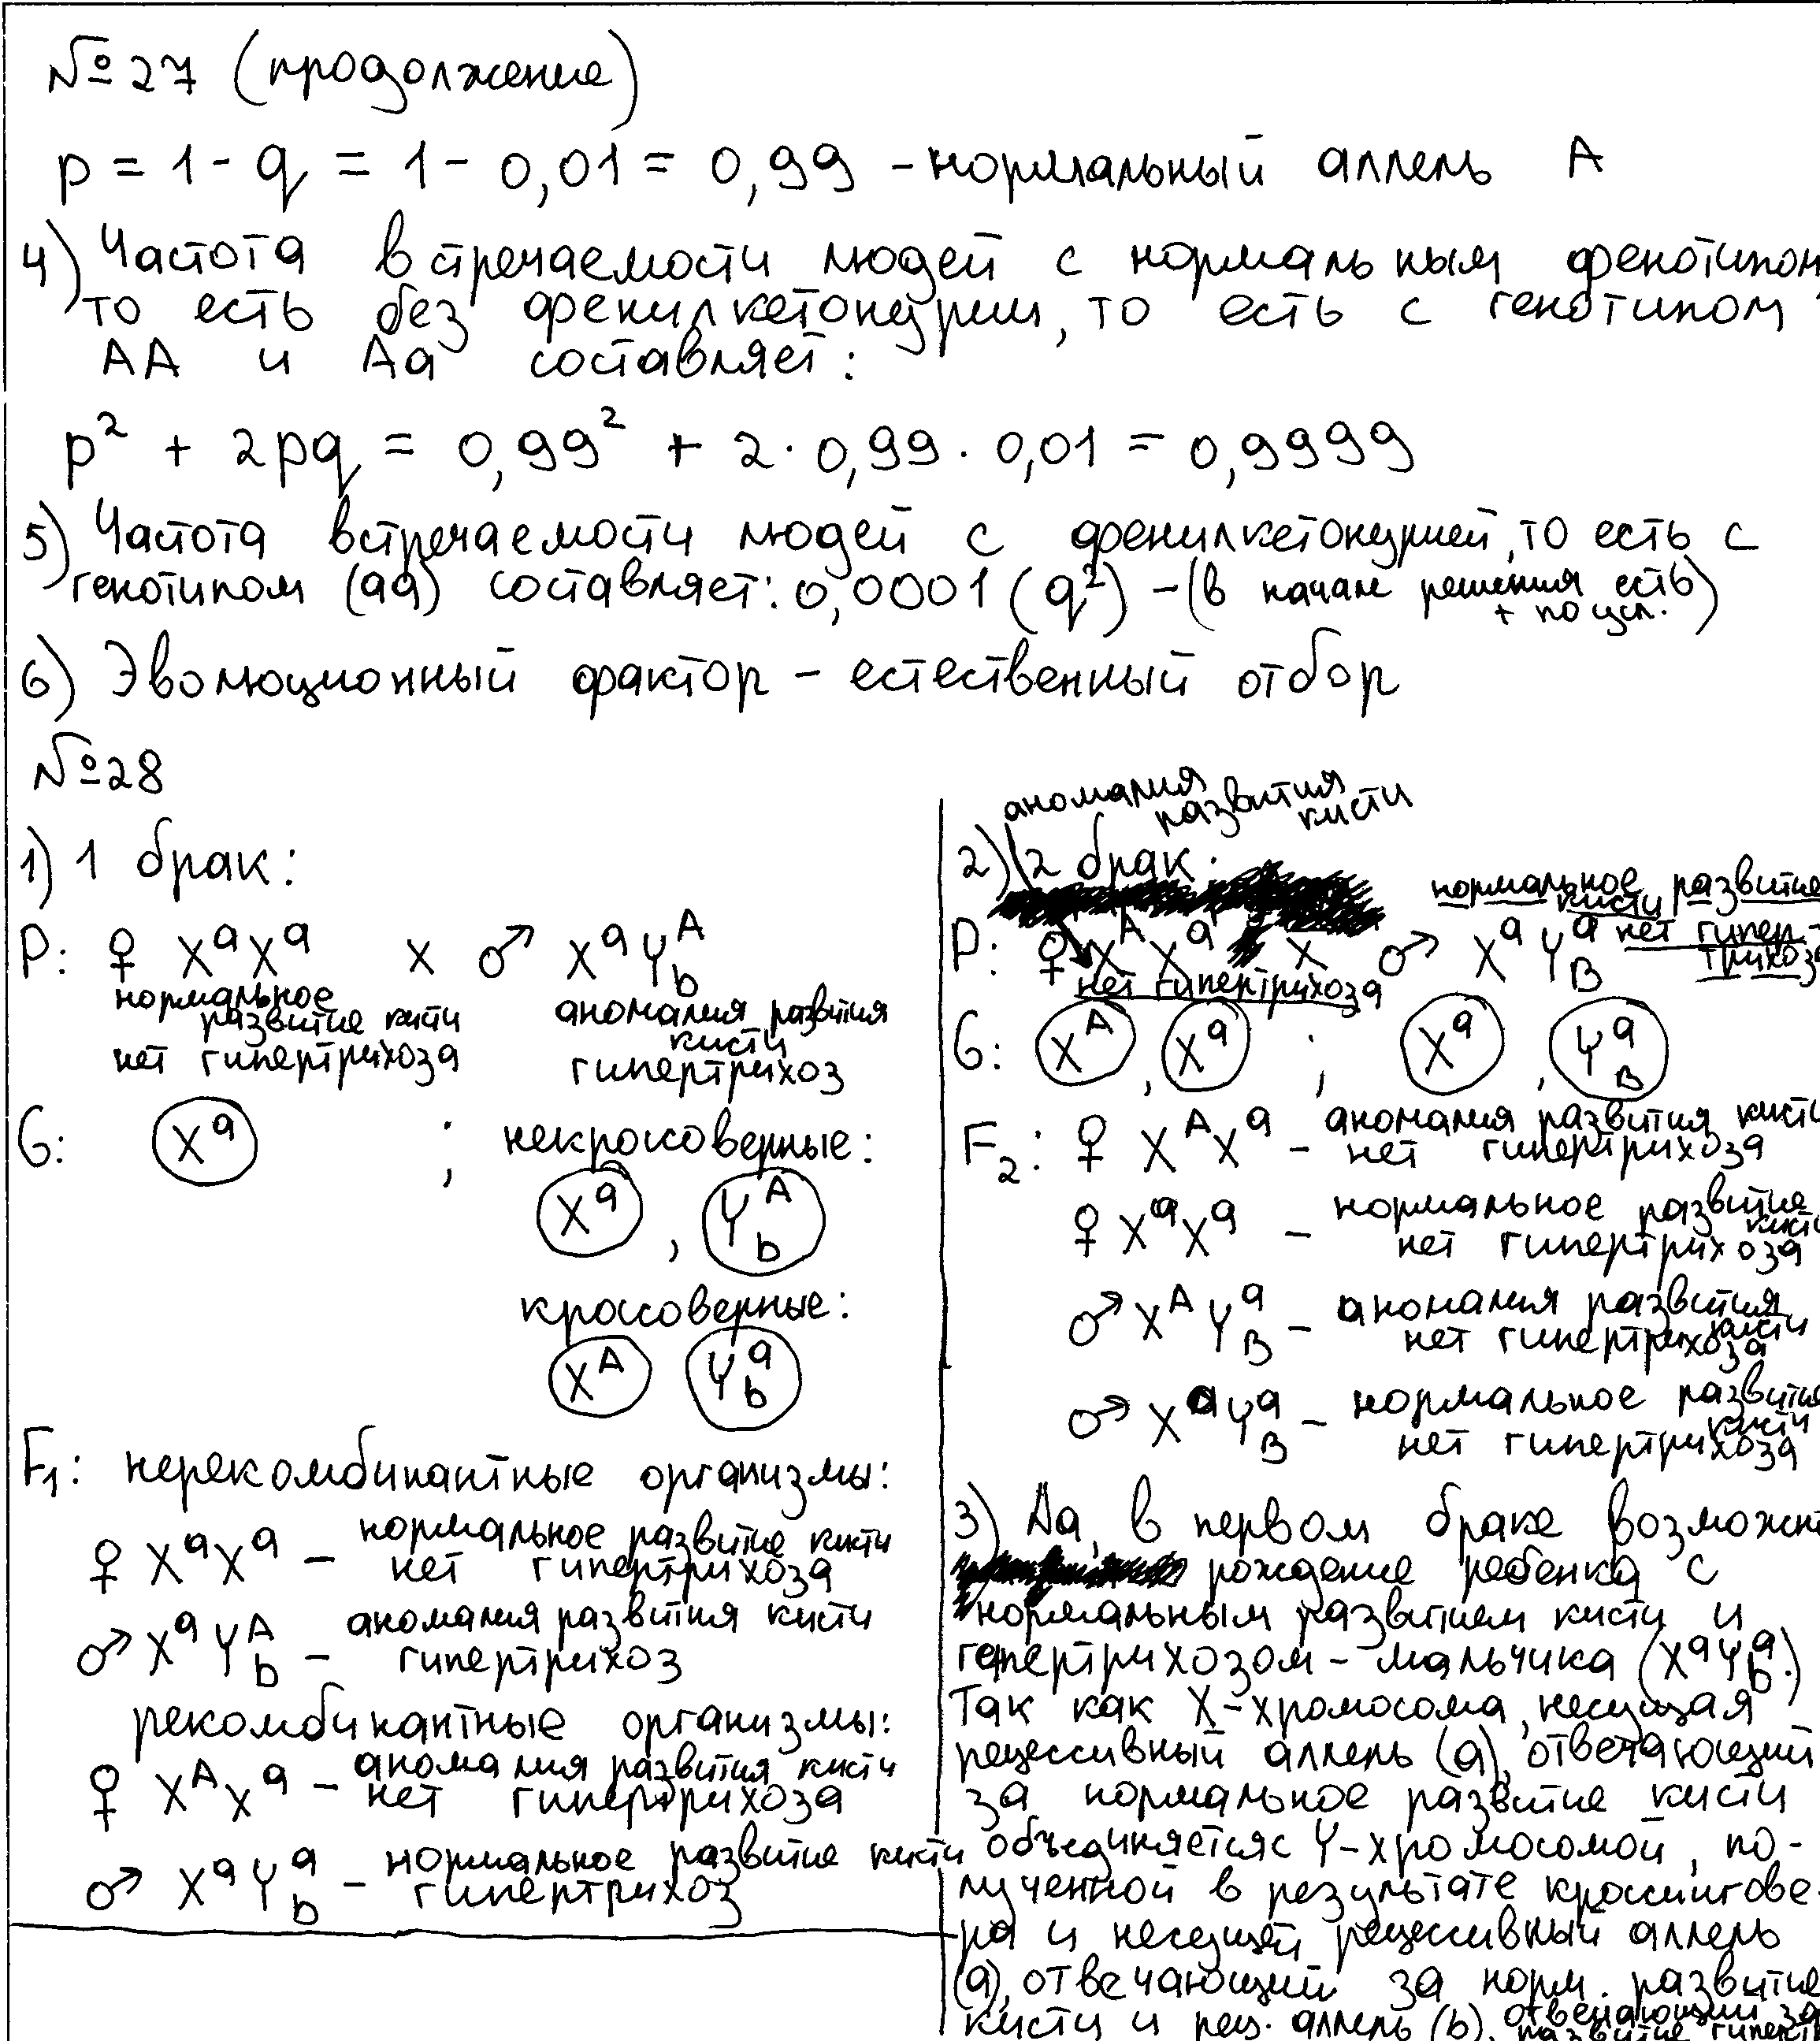 №27 (продолжение)
p = 1 - q = 1 - 0,01 = 0,99 - нормальный аллель A
4) Частота встречаемости людей с нормальным фенотипом,
то есть без фенилкетонурии, то есть с генотипом
AA и Aa составляет:
p² + 2pq = 0,99² + 2 · 0,99 · 0,01 = 0,9999
5) Частота встречаемости людей с фенилкетонурией, то есть с
генотипом (aa) составляет: 0,0001 (q²) - (в начале решения есть)
+ по усл.
6) Эволюционный фактор - естественный отбор
№28
1) 1 брак:
P: ♀ XᵃXᵃ x ♂ XᵃY_b^A
нормальное
развитие кисти
нет гипертрихоза
аномалия развития
кисти
гипертрихоз
G: Xᵃ ; некроссоверные:
Xᵃ , Y_b^A
кроссоверные:
X^A Y_b^a
F₁: нерекомбинантные организмы:
♀ XᵃXᵃ - нормальное развитие кисти
нет гипертрихоза
♂ XᵃY_b^A - аномалия развития кисти
гипертрихоз
рекомбинантные организмы:
♀ X^AXᵃ - аномалия развития кисти
нет гипертрихоза
♂ XᵃY_b^a - нормальное развитие кисти
гипертрихоз
аномалия
развития
кисти
2) 2 брак:
нормальное развитие
кисти
P: ♀ X^AXᵃ x ♂ XᵃY_B^a нет гипер-
трихоза
нет гипертрихоза
G: X^A , Xᵃ ; Xᵃ , Y_B^a
F₂: ♀ X^AXᵃ - аномалия развития кисти
нет гипертрихоза
♀ XᵃXᵃ - нормальное развитие
кисти
нет гипертрихоза
♂ X^AY_B^a - аномалия развития
кисти
нет гипертрихоза
♂ XᵃY_B^a - нормальное развитие
кисти
нет гипертрихоза
3) Да, в первом браке возможно
рождение ребенка с
нормальным развитием кисти и
гипертрихозом - мальчика (XᵃY_b^a.)
Так как X-хромосома, несущая
рецессивный аллель (a), отвечающий
за нормальное развитие кисти
объединяется с Y-хромосомой, по-
лученной в результате кроссингове-
ра и несущей рецессивный аллель
(a), отвечающий за норм. развитие
кисти и рец. аллель (b), отвечающий за
развитие